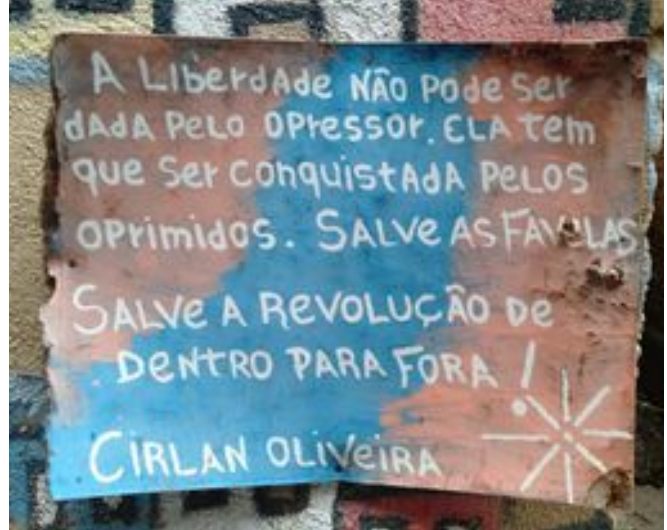 A LIBERDADE NÃO PODE SER
DADA PELO OPRESSOR. ELA TEM
QUE SER CONQUISTADA PELOS
OPRIMIDOS. SALVE AS FAVELAS
SALVE A REVOLUÇÃO DE
DENTRO PARA FORA!
CIRLAN OLIVEIRA